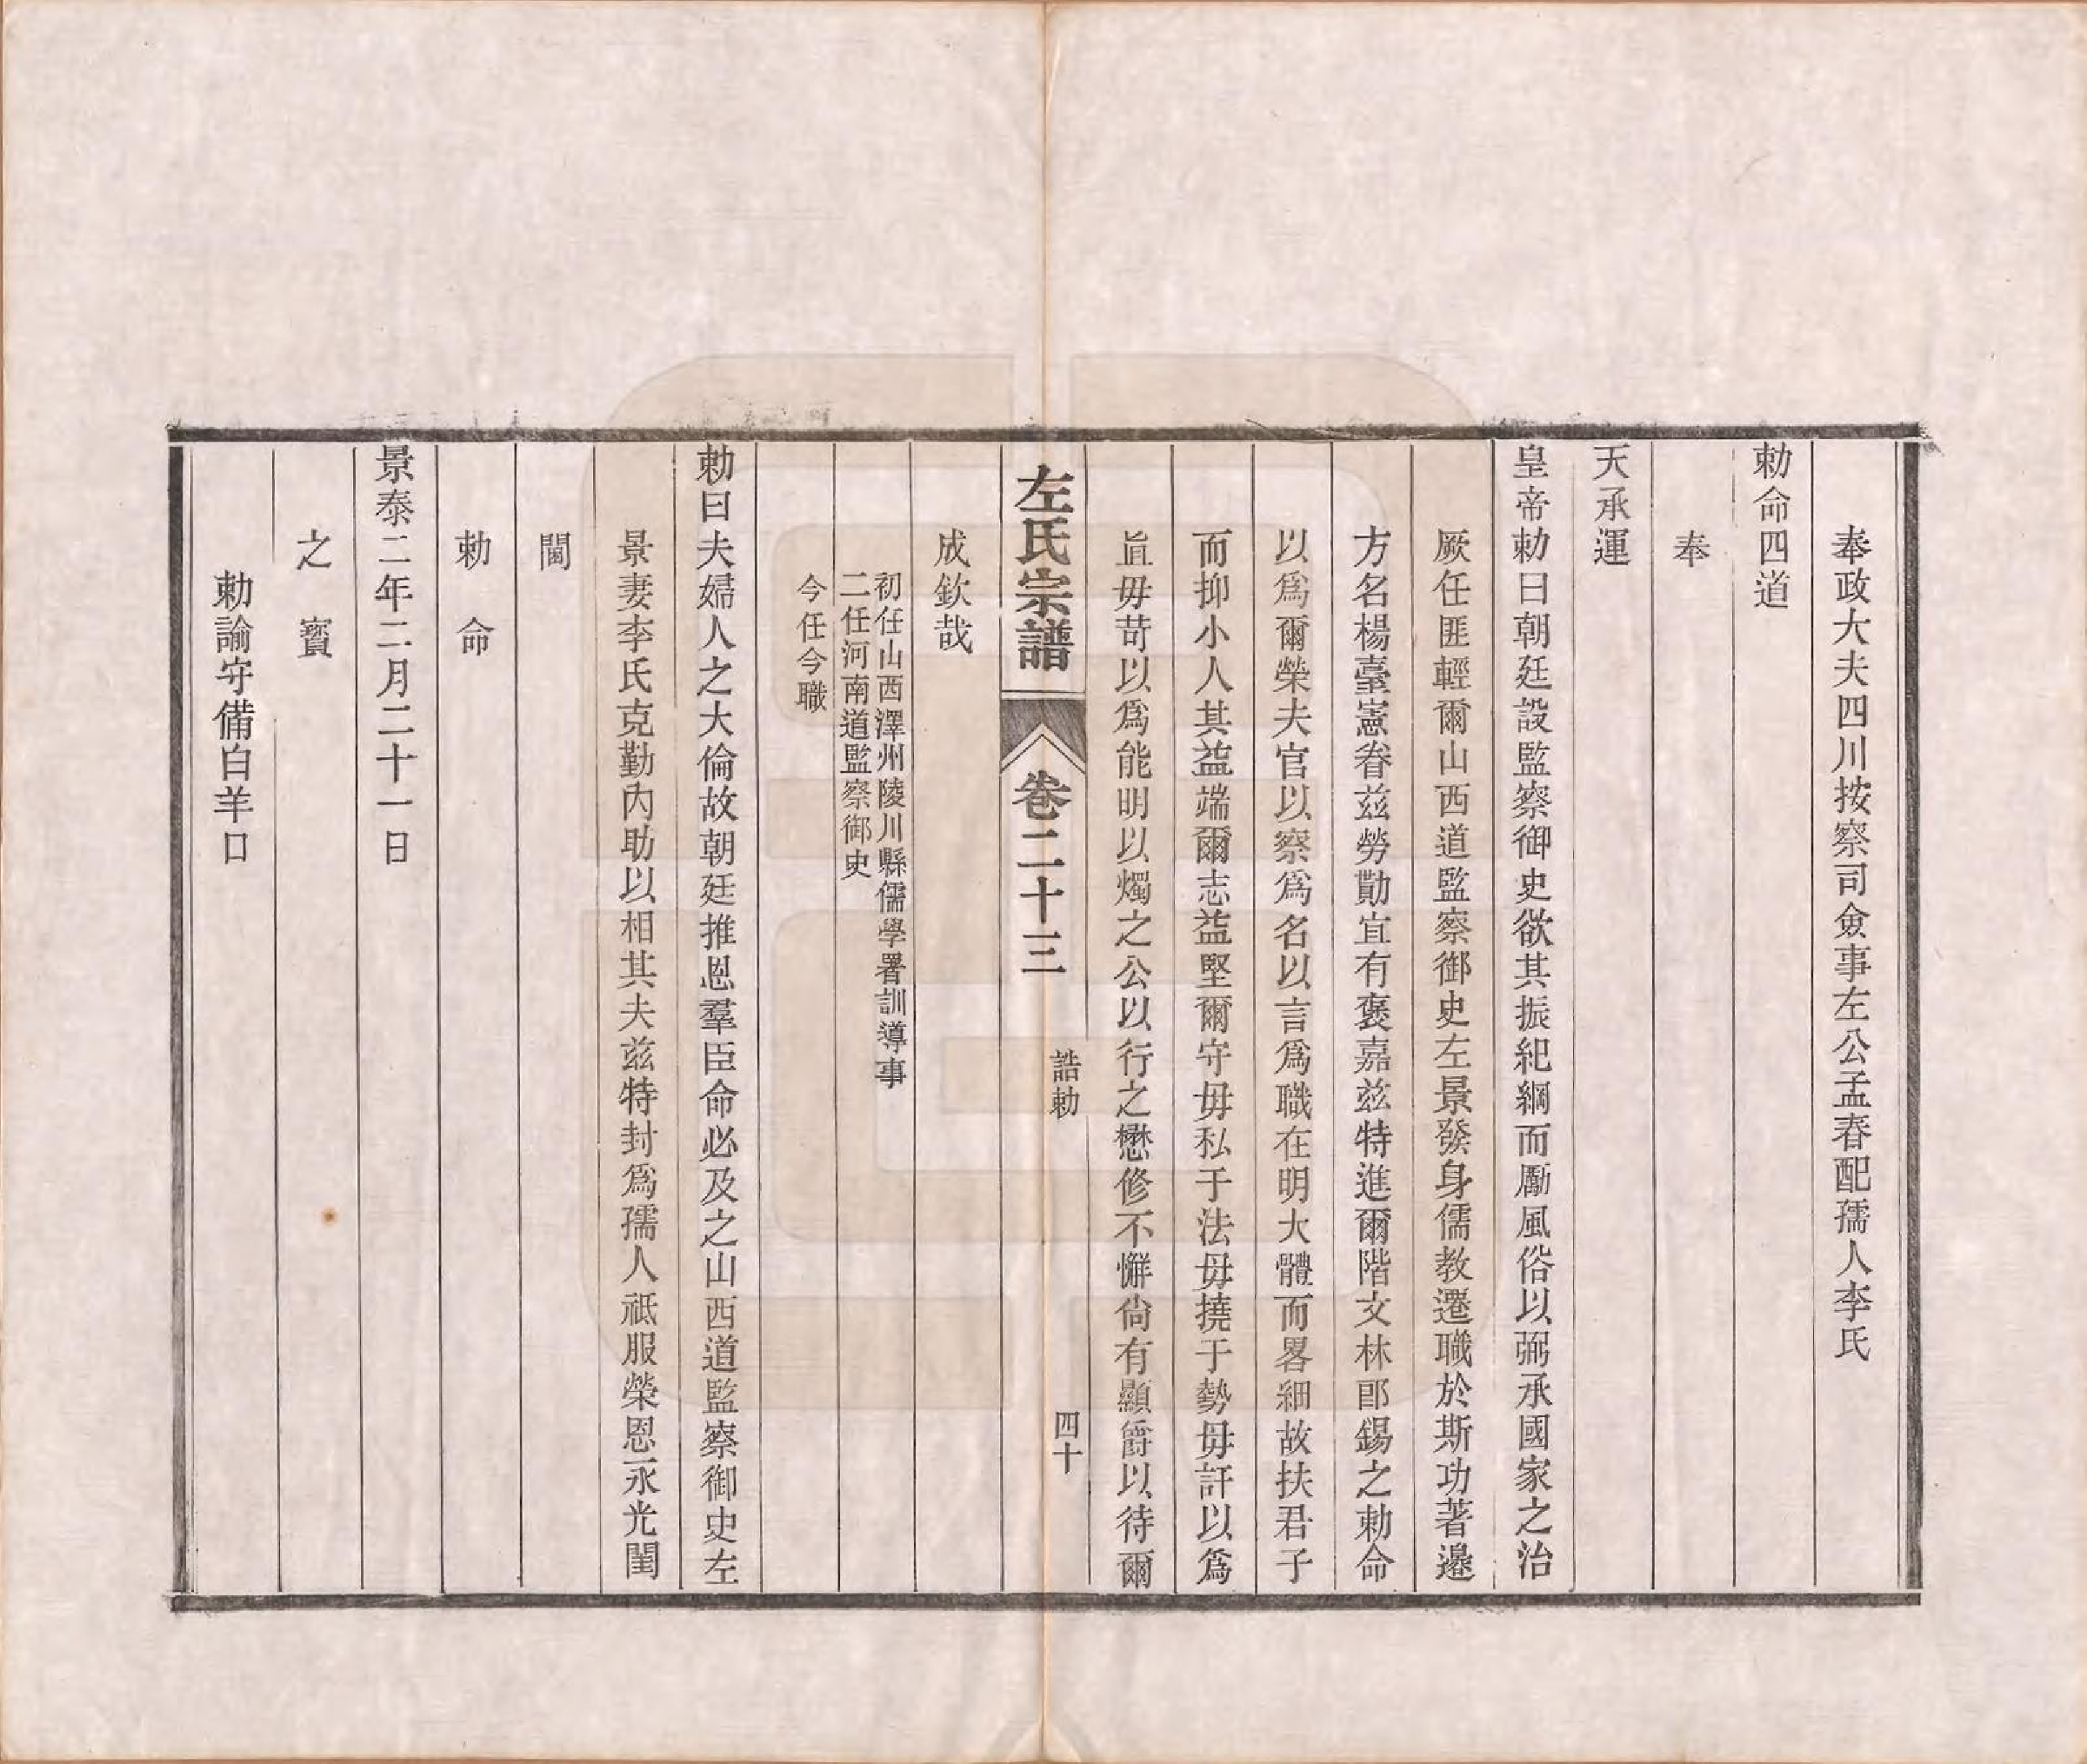 奉政大夫四川按察司僉事左公孟春配孺人李氏
勅命四道
奉
天承運
皇帝勅曰朝廷設監察御史欲其振紀綱而勵風俗以弼承國家之治
厥任匪輕爾山西道監察御史左景發身儒教遷職於斯功著邊
方名楊臺憲眷茲勞勩宜有褒嘉茲特進爾階文林郎錫之勅命
以爲爾榮夫官以察爲名以言爲職在明大體而畧細故扶君子
而抑小人其益端爾志益堅爾守毋私于法毋撓于勢毋訐以爲
直毋苛以爲能明以燭之公以行之懋修不懈尙有顯爵以待爾
左氏宗譜
卷二十三
誥勅
四十
成欽哉
初任山西澤州陵川縣儒學署訓導事
二任河南道監察御史
今任今職
勅曰夫婦人之大倫故朝廷推恩羣臣命必及之山西道監察御史左
景妻李氏克勤內助以相其夫茲特封爲孺人祗服榮恩永光閨
閫
勅命
景泰二年二月二十一日
之寶
勅諭守備白羊口